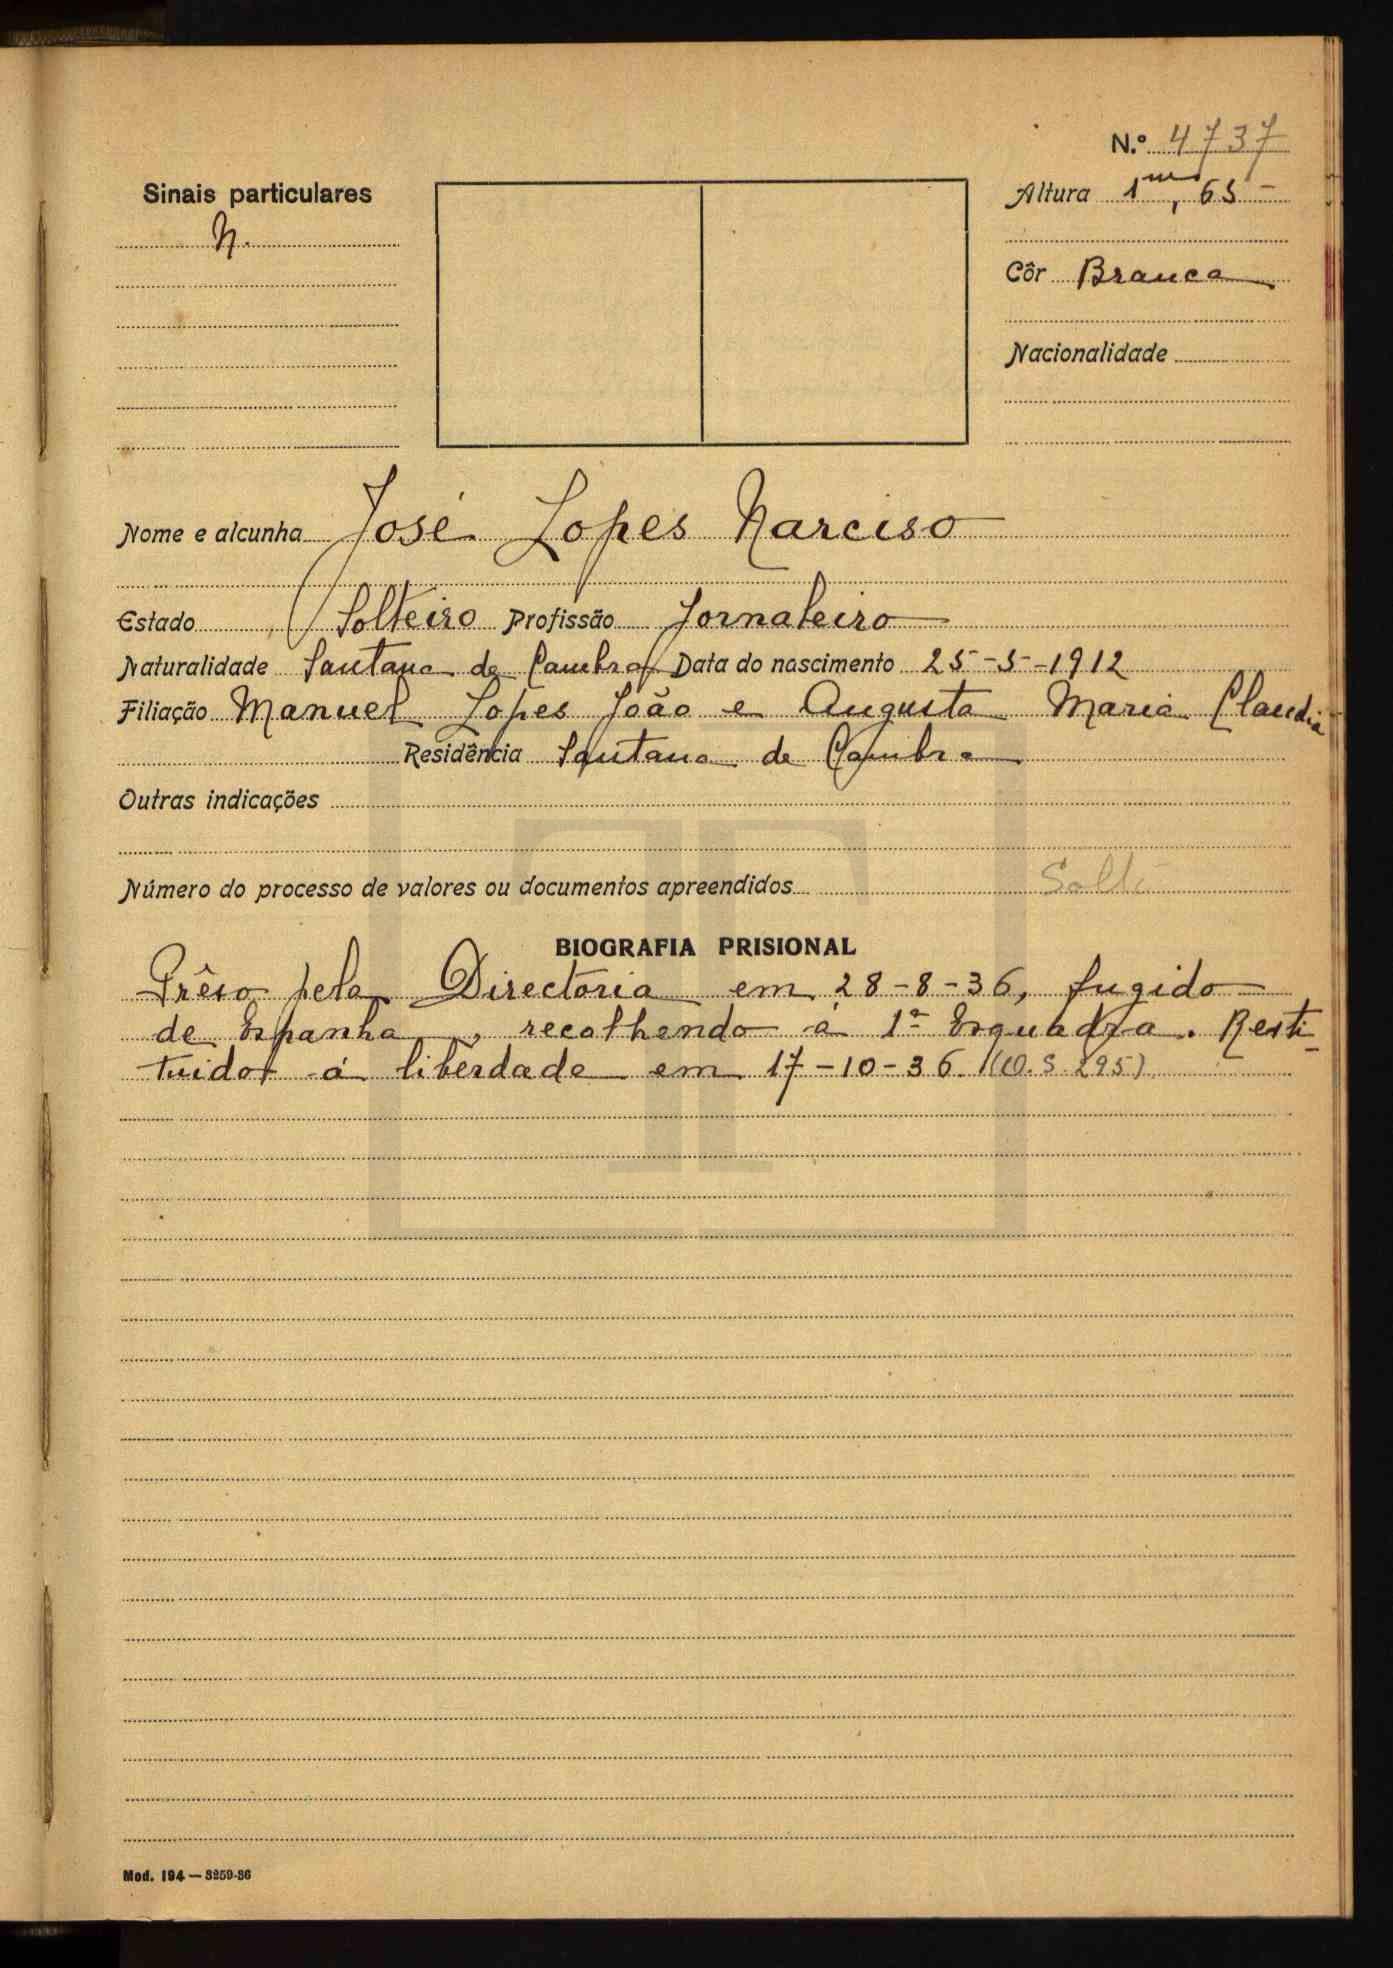 N.º 4737
Sinais particulares
N.
Altura 1m,65-
Côr Branca
Nacionalidade
Nome e alcunha José Lopes Narciso
Estado Solteiro Profissão Jornaleiro
Naturalidade Santana de Cambra Data do nascimento 25-5-1912
Filiação Manuel Lopes João e Augusta Maria Claudia
Residência Santana de Cambra
Outras indicações
Número do processo de valores ou documentos apreendidos
BIOGRAFIA PRISIONAL
Prêso pela Directoria em 28-8-36, fugido
de Espanha, recolhendo á 1ª Esquadra. Resti-
tuido á liberdade em 17-10-36. (O.S. 295)
Mod. 194 — 3259-36